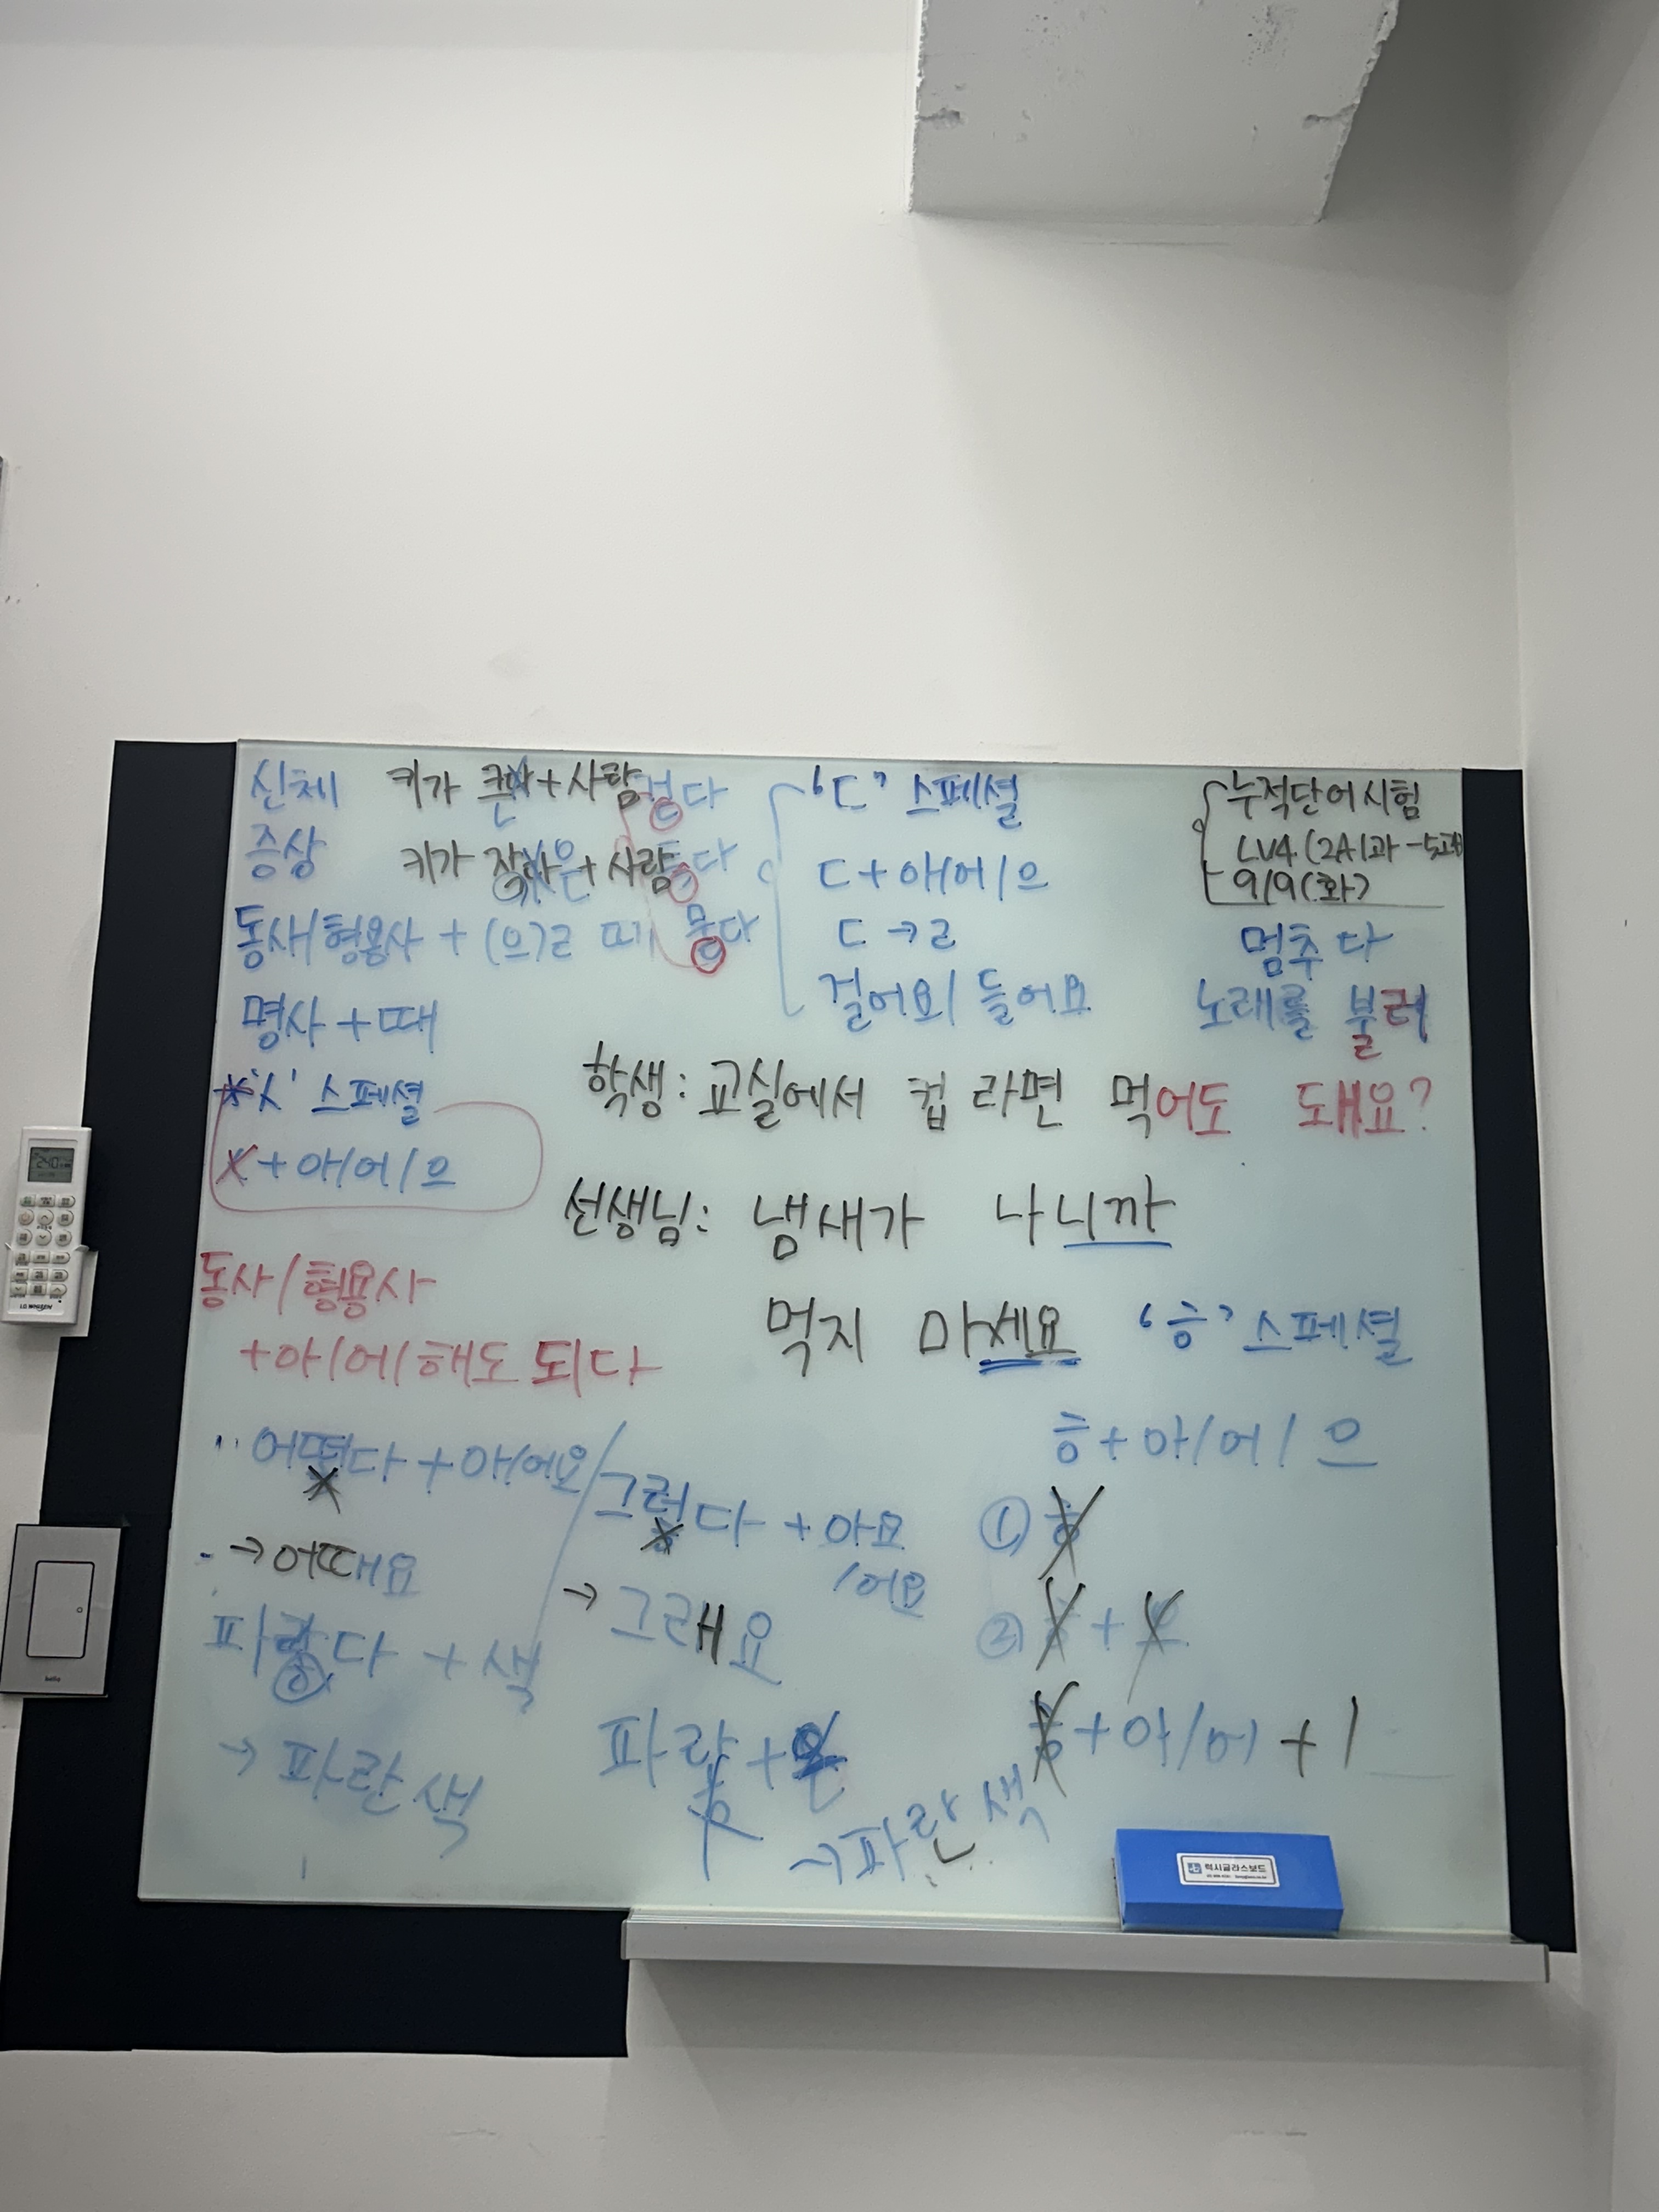 신체
증상
동사/형용사 + (으)ㄹ 때
명사 + 때
*'ㅅ' 스페셜
ㅅ + 아/어/으
키가 큰 + 사람
키가 작은 + 사람
걷다
듣다
묻다
'ㄷ' 스페셜
ㄷ + 아/어/으
ㄷ → ㄹ
걸어요/ 들어요
누적단어시험
LV4 (2A1과 -5과)
9/9(화)
멈추다
노래를 불러
학생: 교실에서 컵 라면 먹어도 돼요?
선생님: 냄새가 나니까
먹지 마세요
동사/형용사
+아/어/해도 되다
어떻다 + 아/어요
→ 어때요
파랗다 + 색
→ 파란 색
그렇다 + 아요
/어요
→ 그래요
파랗 + 은
→ 파란 색
'ㅎ' 스페셜
ㅎ + 아/어/으
① ㅎ
② ㅎ + 으
ㅎ + 아/어 + ㅣ
럭시글라스보드
LG WHISEN